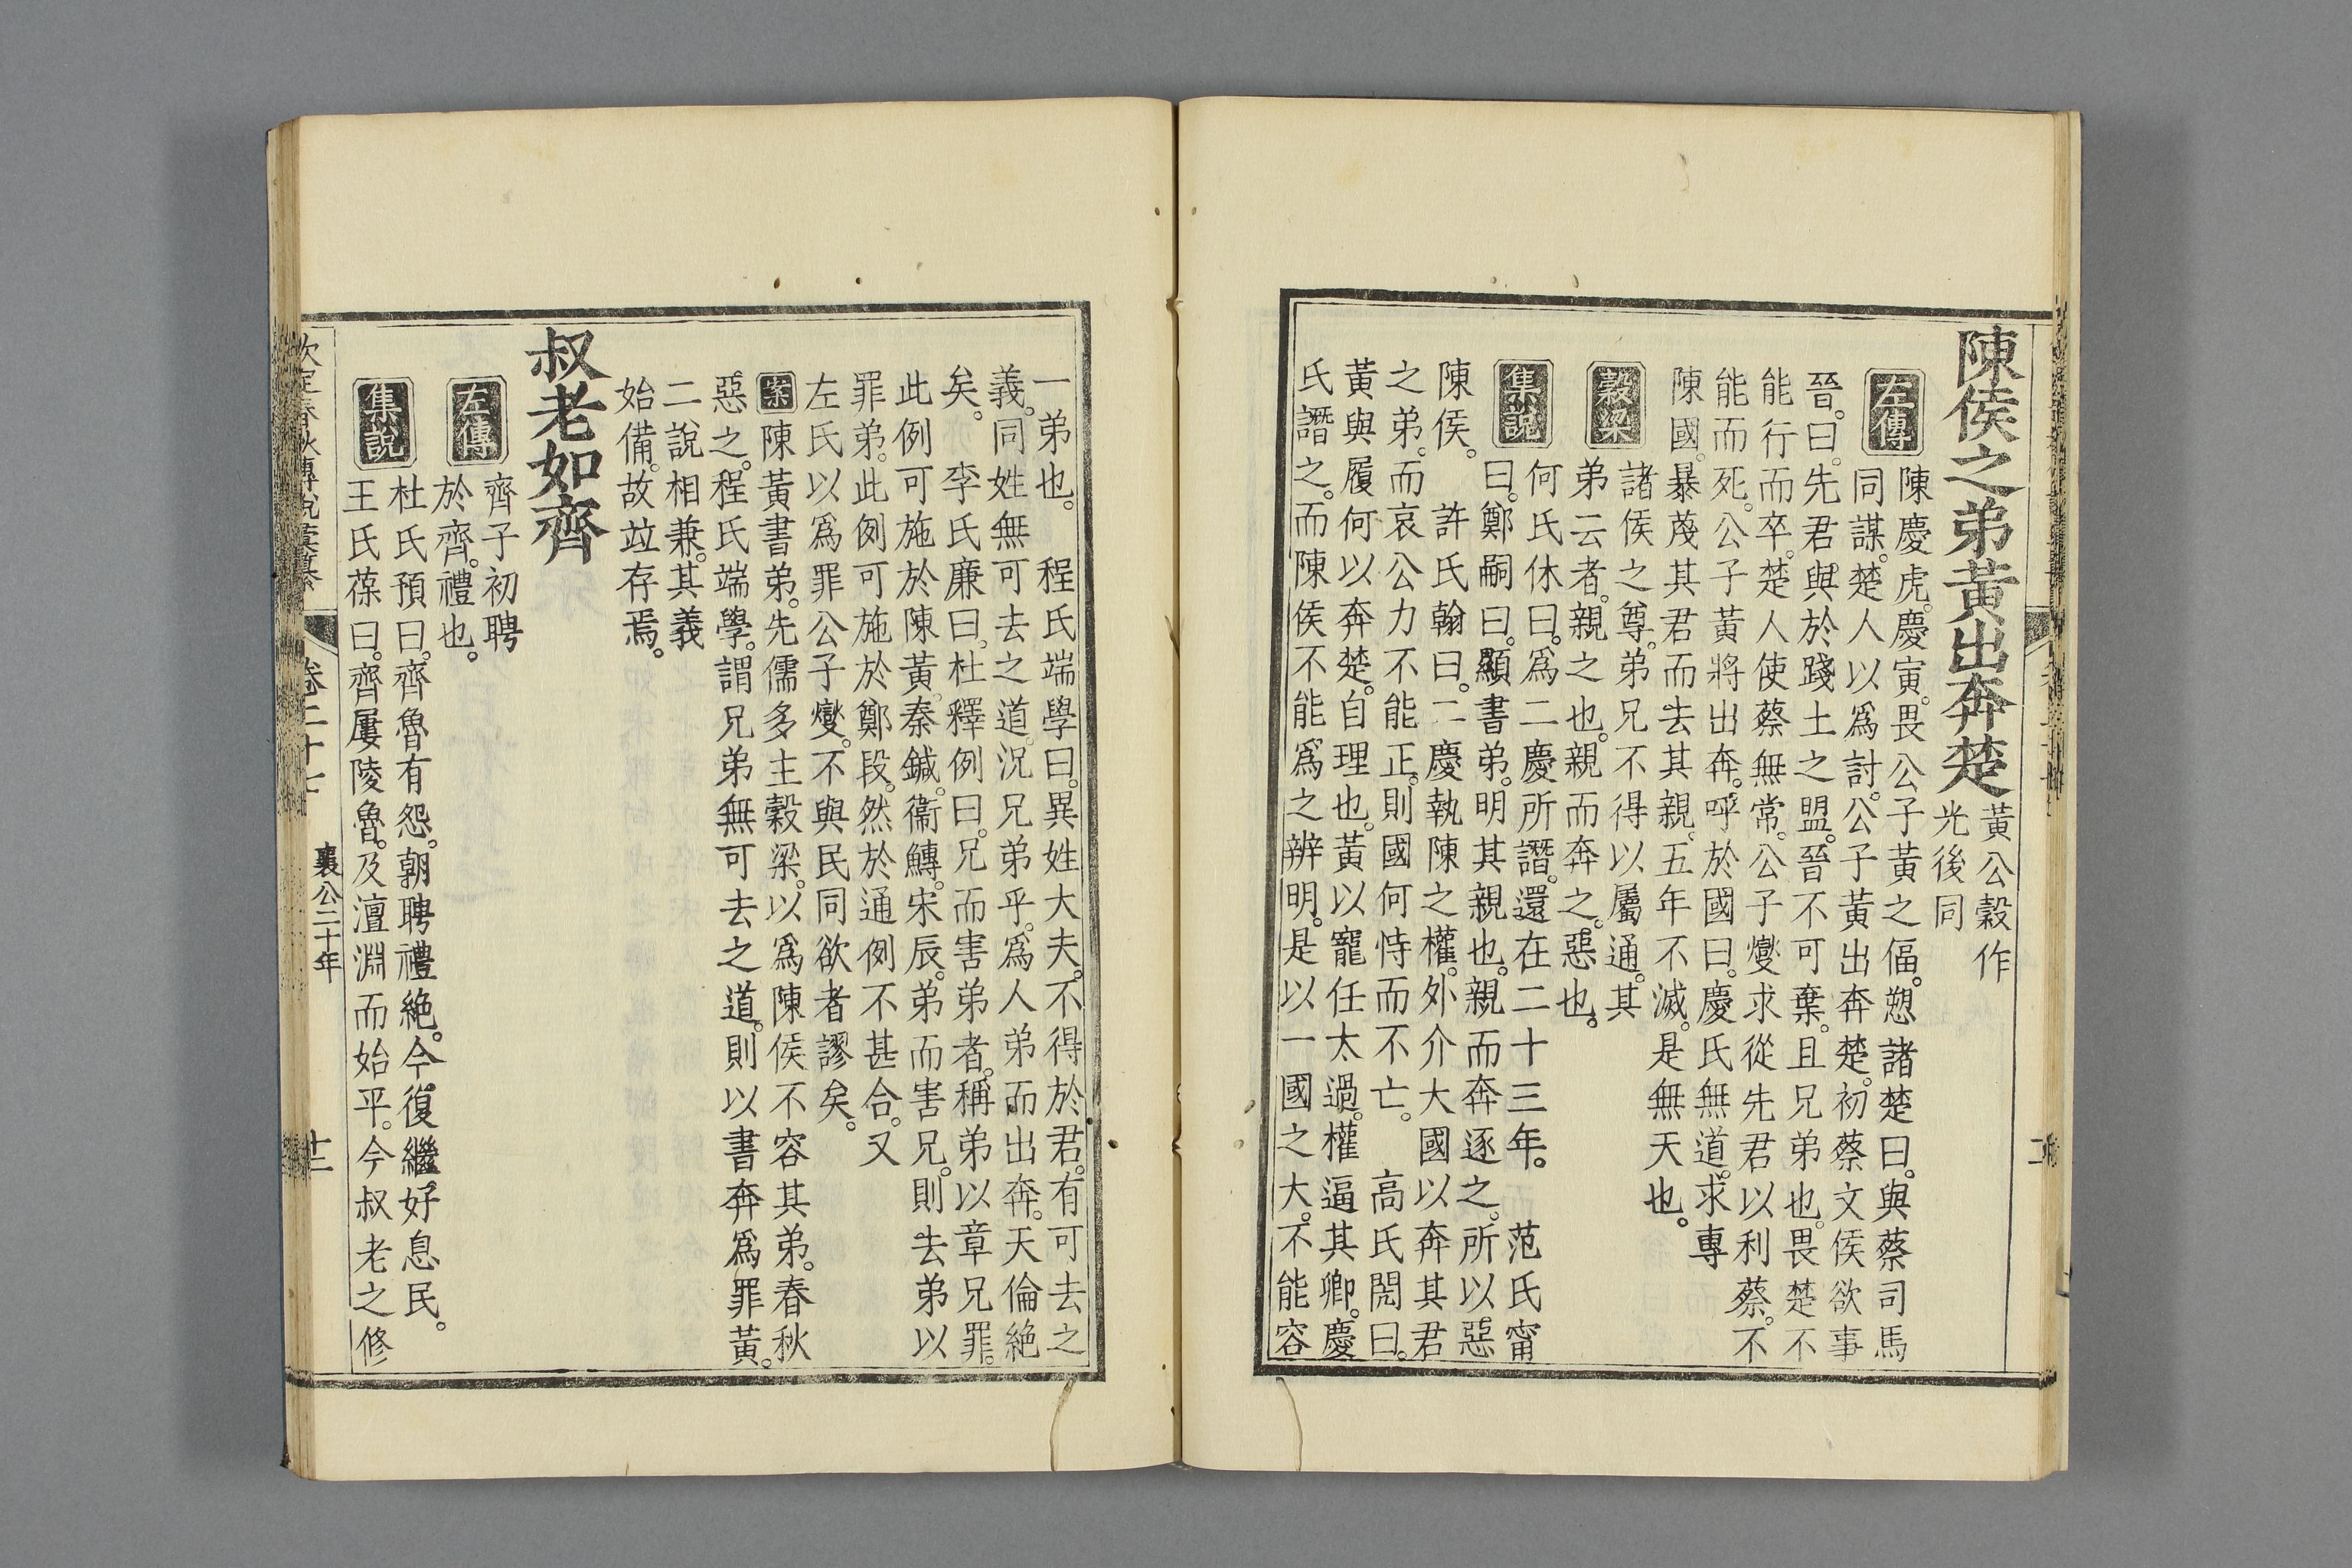 陳侯之弟黃出奔楚
黃公穀作
光後同
左傳
陳慶虎。慶寅。畏公子黃之偪。愬諸楚曰。與蔡司馬
同謀。楚人以爲討。公子黃出奔楚。初蔡文侯欲事
晉。曰。先君與於踐土之盟。晉不可棄。且兄弟也。畏楚不
能行而卒。楚人使蔡無常。公子燮求從先君以利蔡。不
能而死。公子黃將出奔。呼於國曰。慶氏無道。求專
陳國。暴蔑其君而去其親。五年不滅。是無天也。
穀梁
諸侯之尊。弟兄不得以屬通。其
弟云者。親之也。親而奔之。惡也。
集說
何氏休曰。爲二慶所譖。還在二十三年。 范氏甯
曰。鄭嗣曰。顯書弟。明其親也。親而奔逐之。所以惡
陳侯。 許氏翰曰。二慶執陳之權。外介大國以奔其君
之弟。而哀公力不能正。則國何恃而不亡。 高氏閌曰。
黃與履何以奔楚。自理也。黃以寵任太過。權逼其卿。慶
氏譖之。而陳侯不能爲之辨明。是以一國之大。不能容
一弟也。 程氏端學曰。異姓大夫。不得於君。有可去之
義。同姓無可去之道。況兄弟乎。爲人弟而出奔。天倫絶
矣。 李氏廉曰。杜釋例曰。兄而害弟者。稱弟以章兄罪。
此例可施於陳黃。秦鍼。衞鱄。宋辰。弟而害兄。則去弟以
罪弟。此例可施於鄭段。然於通例不甚合。又
左氏以爲罪公子燮。不與民同欲者謬矣。
案 陳黃書弟。先儒多主穀梁。以爲陳侯不容其弟。春秋
惡之。程氏端學。謂兄弟無可去之道。則以書奔爲罪黃。
二說相兼。其義
始備。故竝存焉。
叔老如齊
左傳
齊子初聘
於齊。禮也。
集說
杜氏預曰。齊魯有怨。朝聘禮絶。今復繼好息民。
王氏葆曰。齊屢陵魯。及澶淵而始平。今叔老之修
欽定春秋傳說彙纂
卷二十七
襄公二十年
十二